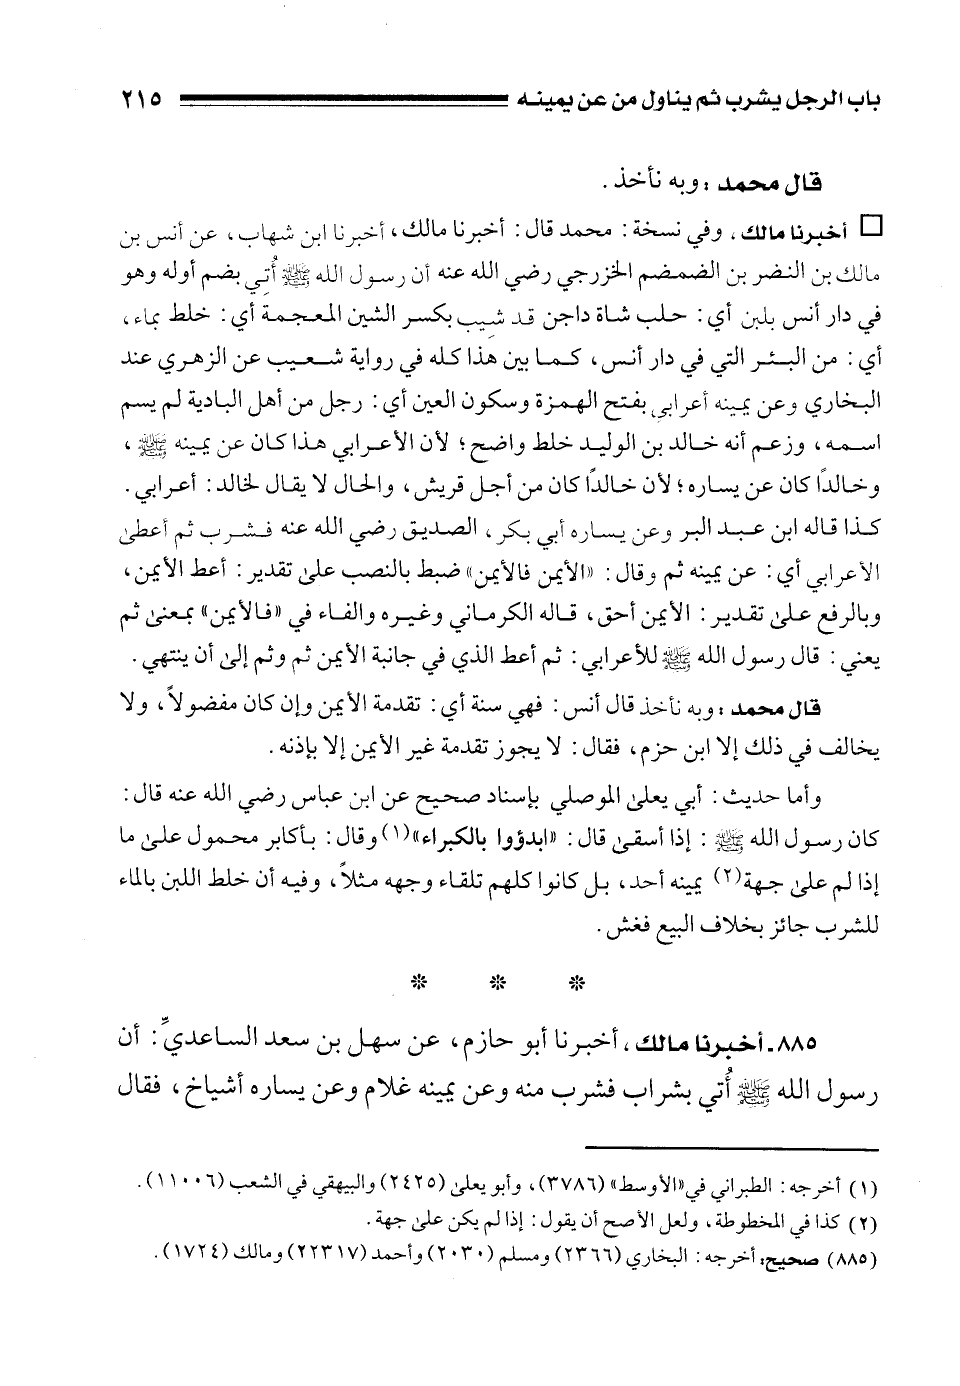 باب الرجل يشرب ثم يناول من عن يمينه ٢١٥
قال محمد : وبه نأخذ .
□ أخبرنا مالك، وفي نسخة: محمد قال: أخبرنا مالك، أخبرنا ابن شهاب، عن أنس بن
مالك بن النضر بن الضمضم الخزرجي رضي الله عنه أن رسول الله ﷺ أُتي بضم أوله وهو
في دار أنس بلبن أي: حلب شاة داجن قد شِيب بكسر الشين المعجمة أي: خلط بماء،
أي: من البئر التي في دار أنس، كما بين هذا كله في رواية شعيب عن الزهري عند
البخاري وعن يمينه أعرابي بفتح الهمزة وسكون العين أي: رجل من أهل البادية لم يسم
اسمه، وزعم أنه خالد بن الوليد خلط واضح؛ لأن الأعرابي هذا كان عن يمينه ﷺ،
وخالداً كان عن يساره؛ لأن خالداً كان من أجل قريش، والحال لا يقال لخالد: أعرابي.
كذا قاله ابن عبد البر وعن يساره أبي بكر، الصديق رضي الله عنه فشرب ثم أعطى
الأعرابي أي: عن يمينه ثم وقال: «الأيمن فالأيمن» ضبط بالنصب على تقدير: أعط الأيمن،
وبالرفع على تقدير: الأيمن أحق، قاله الكرماني وغيره والفاء في «فالأيمن» بمعنى ثم
يعني: قال رسول الله ﷺ للأعرابي: ثم أعط الذي في جانبة الأيمن ثم وثم إلى أن ينتهي.
قال محمد : وبه نأخذ قال أنس: فهي سنة أي: تقدمة الأيمن وإن كان مفضولاً، ولا
يخالف في ذلك إلا ابن حزم، فقال: لا يجوز تقدمة غير الأيمن إلا بإذنه.
وأما حديث: أبي يعلى الموصلي بإسناد صحيح عن ابن عباس رضي الله عنه قال:
كان رسول الله ﷺ: إذا أسقى قال: «ابدؤوا بالكبراء»(١) وقال: بأكابر محمول على ما
إذا لم على جهة(٢) يمينه أحد، بل كانوا كلهم تلقاء وجهه مثلاً، وفيه أن خلط اللبن بالماء
للشرب جائز بخلاف البيع فغش.
* * *
٨٨٥ـ أخبرنا مالك، أخبرنا أبو حازم، عن سهل بن سعد الساعديِّ: أن
رسول الله ﷺ أُتي بشراب فشرب منه وعن يمينه غلام وعن يساره أشياخ، فقال
(١) أخرجه: الطبراني في«الأوسط» (٣٧٨٦)، وأبو يعلى (٢٤٢٥) والبيهقي في الشعب (١١٠٠٦).
(٢) كذا في المخطوطة، ولعل الأصح أن يقول: إذا لم يكن على جهة.
(٨٨٥) صحيح: أخرجه: البخاري (٢٣٦٦) ومسلم (٢٠٣٠) وأحمد (٢٢٣١٧) ومالك (١٧٢٤).